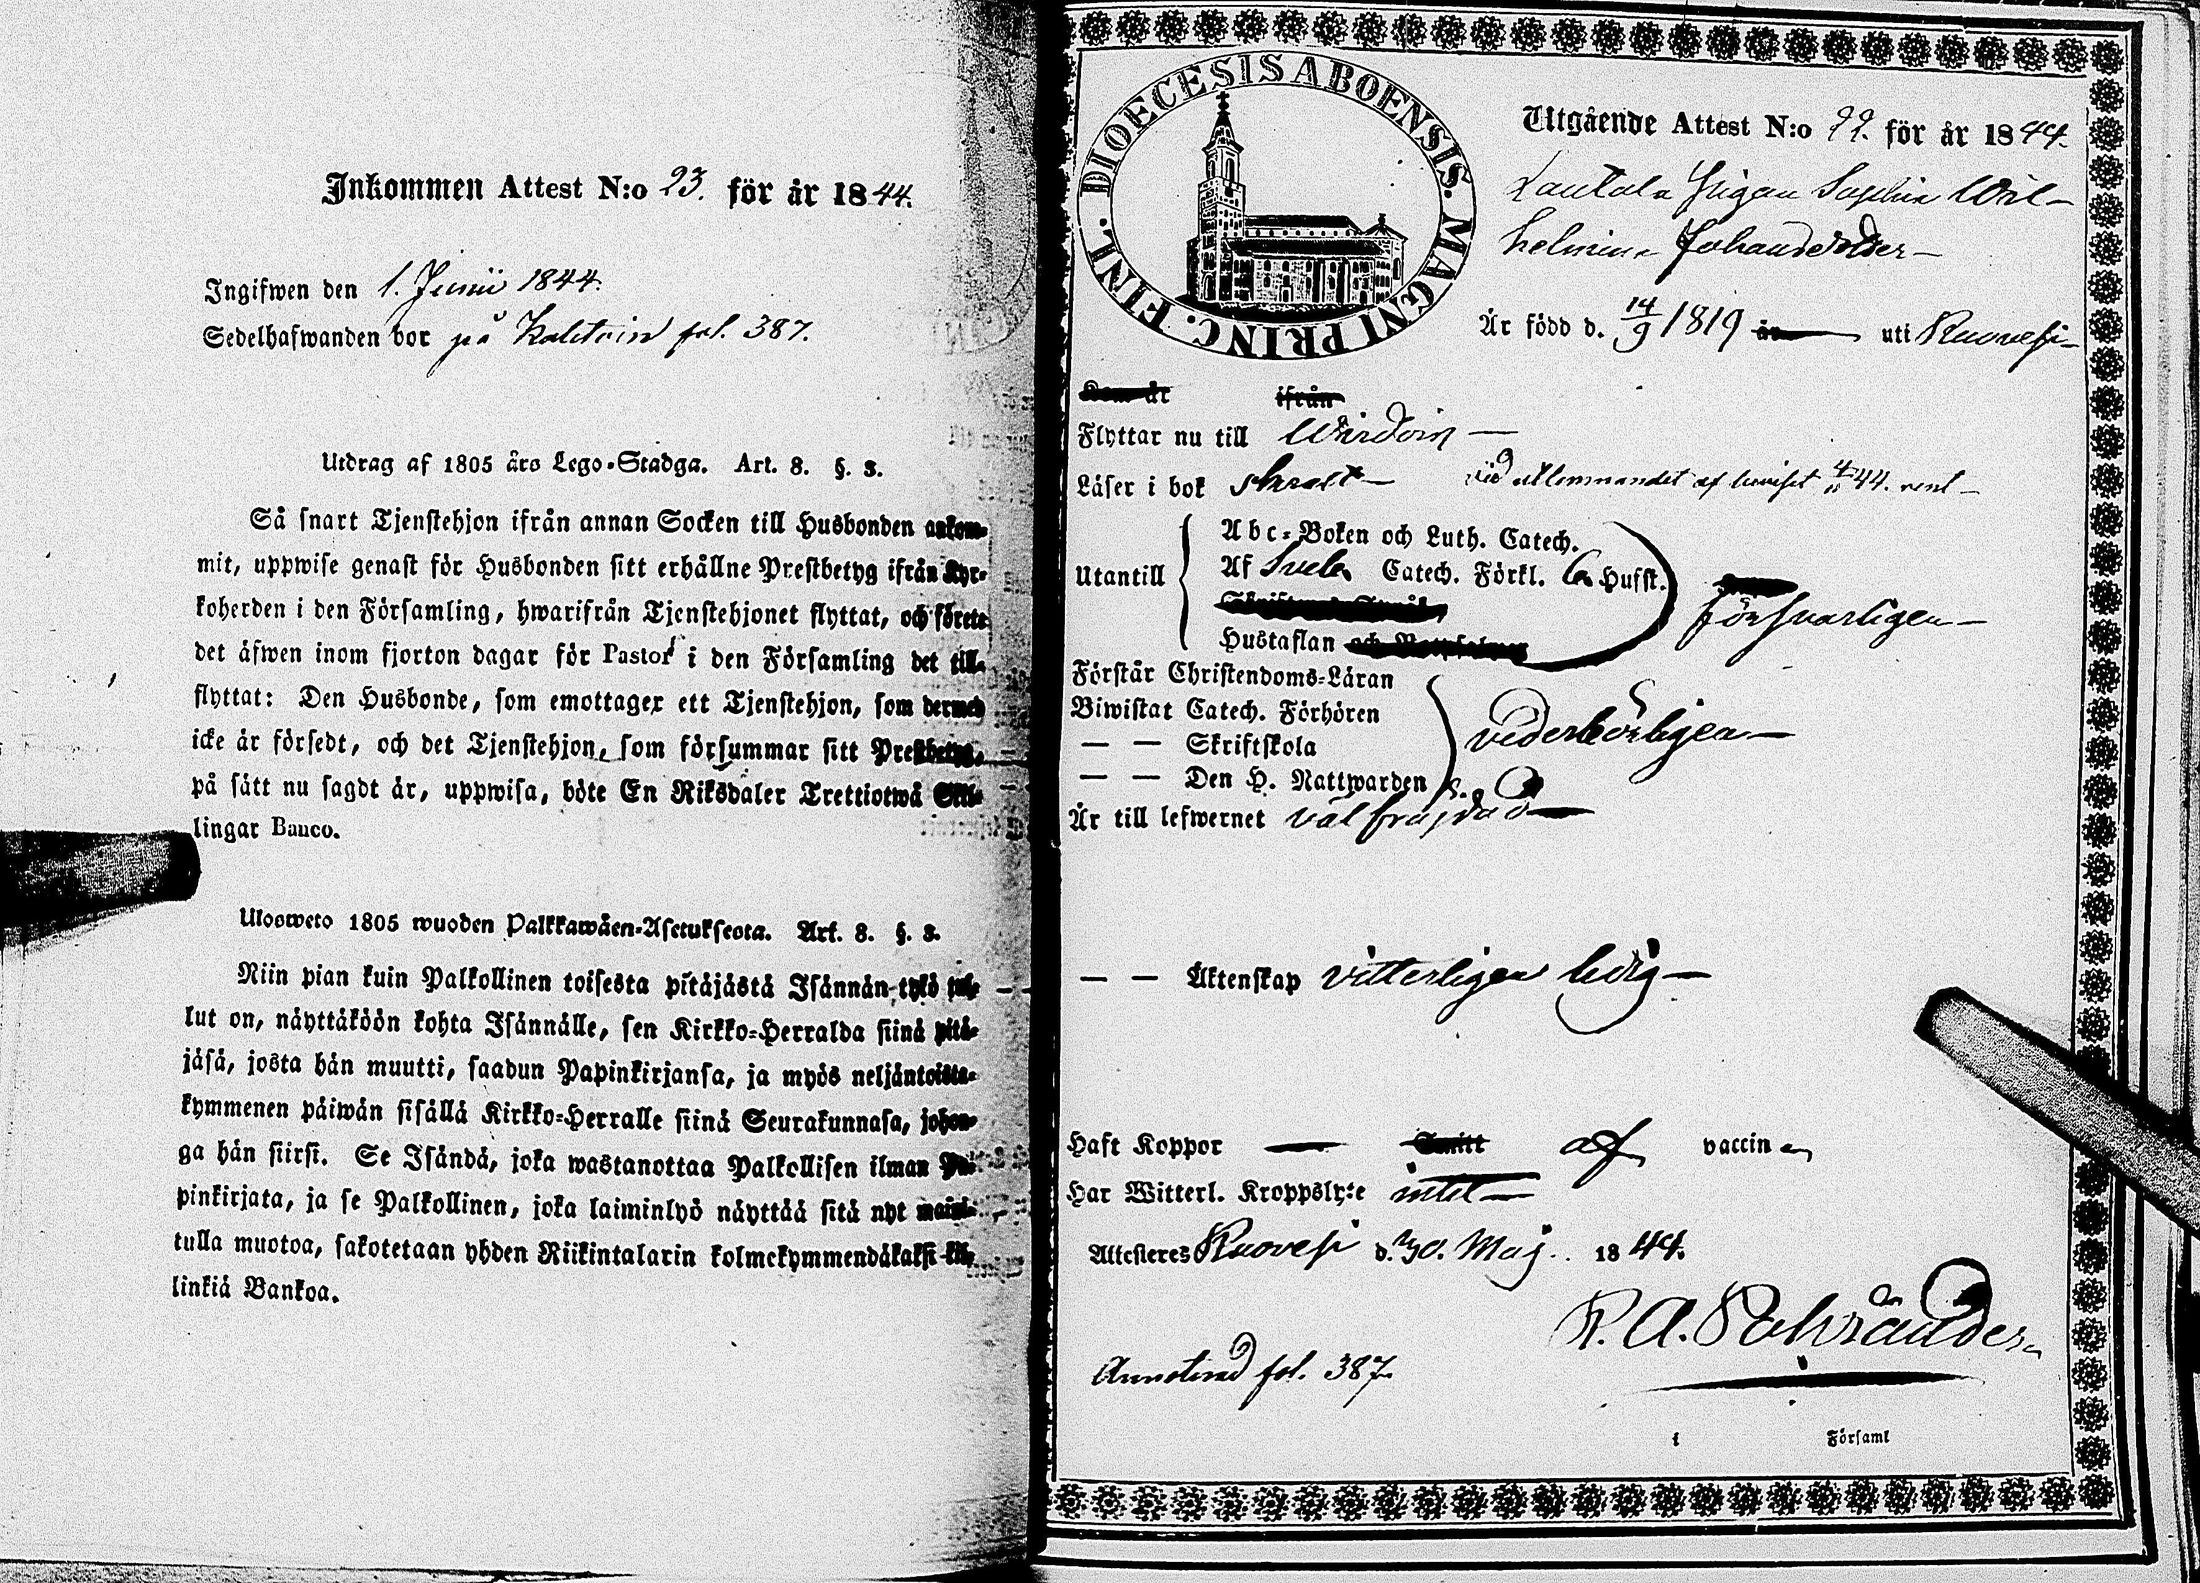 Inkommen Attest N:o 23. för år 1844.
Ingifwen den 1. Junii 1844.
Sedelhafwanden bor på fol. 387.
Utdrag af 1805 års Lego-Stadga. Art. 8. §. 3.
Så snart Tjenstehjon ifrån annan Socken till Husbonden ankom-
mit, uppwise genast för Husbonden sitt erhållne Prestbetyg ifrån Kyr-
koherden i den Församling, hwarifrån Tjenstehjonet flyttat, och förete
det äfwen inom fjorton dagar för Pastor i den Församling det till-
flyttat: Den Husbonde, som emottager ett Tjenstehjon, som dermed
icke är försedt, och det Tjenstehjon, som försummar sitt Prestbetyg,
på sätt nu sagdt är, uppwisa, böte En Riksdaler Trettiotwå Skil-
lingar Banco.
Ulosweto 1805 wuoden Palkkawäen-Asetuksesta. Art. 8. §. 3.
Niin pian kuin Palkollinen toisesta pitäjästä Isännän tykö tul-
lut on, näyttäköön kohta Isännälle, sen Kirkko-Herralda siinä pitä-
jäsä, josta hän muutti, saadun Papinkirjansa, ja myös neljäntoista-
kymmenen päiwän sisällä Kirkko-Herralle siinä Seurakunnasa, johon-
ga hän siirsi. Se Isändä, joka wastanottaa Palkollisen ilman Pa-
pinkirjata, ja se Palkollinen, joka laiminlyö näyttää sitä nyt maini-
tulla muotoa, sakotetaan yhden Riikintalarin kolmekymmendäkaksi kil-
linkiä Bankoa.
DIOECESIS ABOENSIS. MAGNI PRINC. FINL.
Utgående Attest N:o 22. för år 1844.
Lautala Pigan Sophia Wil-
helmina Johansdotter
Är född d. 14/9 1819 år uti Ruovesi
Kom år ifrån
Flyttar nu till Wirdois
Läser i bok svagt vid utkommandet af beviset 44.
Abc-Boken och Luth. Catech.
Utantill Af Sveb. Catech. Förkl. Hufst.
Hustaflan försvarligen
Förstår Christendoms-Läran
Biwistat Catech. Förhören vederbörligen
— — Skriftskola
— — Den H. Nattwarden
Är till lefwernet välfräjdad
— — Äktenskap vitterligen ledig
Haft Koppor — Smitt af vaccin
Har Witterl. Kroppslyte intet
Attesteres Ruovesi d. 30. Maj. 1844.
Annoterad fol. 387.
i Församl